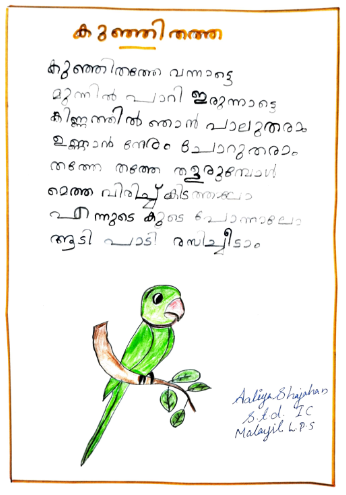 കുഞ്ഞിതത്ത
കുഞ്ഞിതത്തേ വന്നാട്ടെ
മുന്നിൽ പാറി ഇരുന്നാട്ടെ
കിണ്ണത്തിൽ ഞാൻ പാലുതരാം
ഉണ്ണാൻ നേരം ചോറുതരാം
തത്തേ തത്തേ തളരുമ്പോൾ
മെത്ത വിരിച്ച് കിടത്താലോ
എന്നുടെ കൂടെ പോന്നാലോ
ആടി പാടി രസിച്ചീടാം
Aaliya Shajahan
S.t.d. I C
Malayil L.P.S